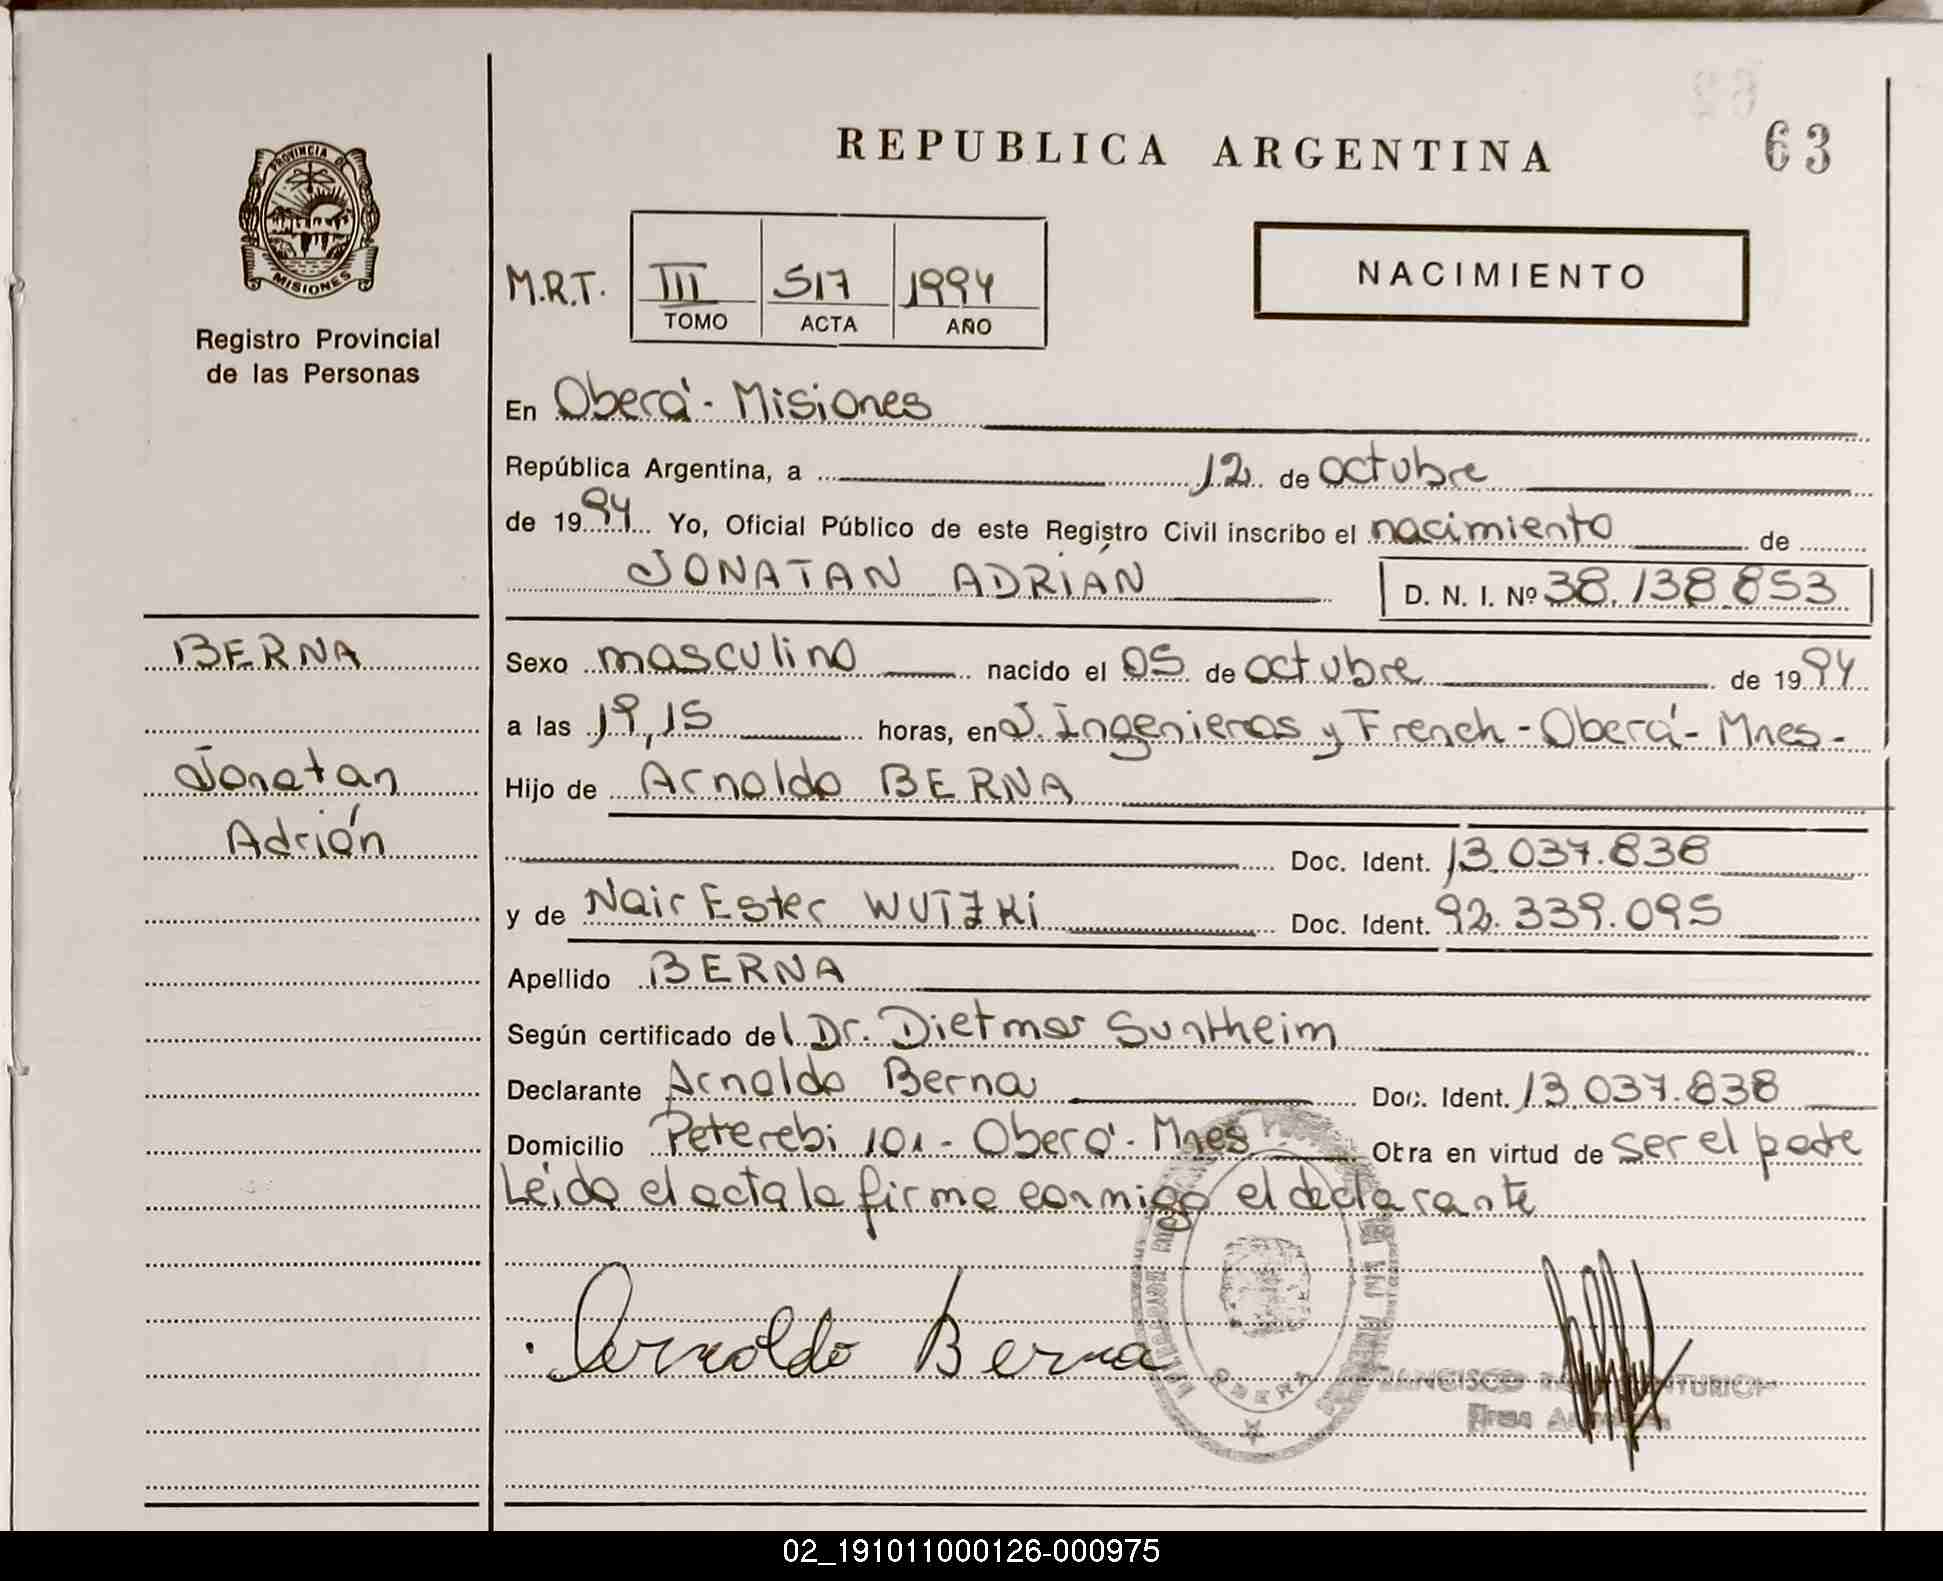 REPUBLICA ARGENTINA
63
PROVINCIA DE
MISIONES
Registro Provincial
de las Personas
M.R.T.
III 517 1994
TOMO ACTA AÑO
NACIMIENTO
En Oberá - Misiones
República Argentina, a 12 de octubre
de 1994 Yo, Oficial Público de este Registro Civil inscribo el nacimiento de
JONATAN ADRIÁN D. N. I. Nº 38.138.853
BERNA
Jonatan
Adrián
Sexo masculino nacido el 05 de octubre de 1994
a las 19,15 horas, en J. Ingenieros y French - Oberá - Mnes -
Hijo de Arnoldo BERNA
Doc. Ident. 13.037.838
y de Nair Ester WUTZKI Doc. Ident. 92.339.095
Apellido BERNA
Según certificado del Dr. Dietmar Suntheim
Declarante Arnoldo Berna Doc. Ident. 13.037.838
Domicilio Peterebi 101 - Oberá - Mnes Obra en virtud de ser el padre
Leída el acta la firma conmigo el declarante
Arnoldo Berna
OBERA
FRANCISCO
Firma
02_191011000126-000975